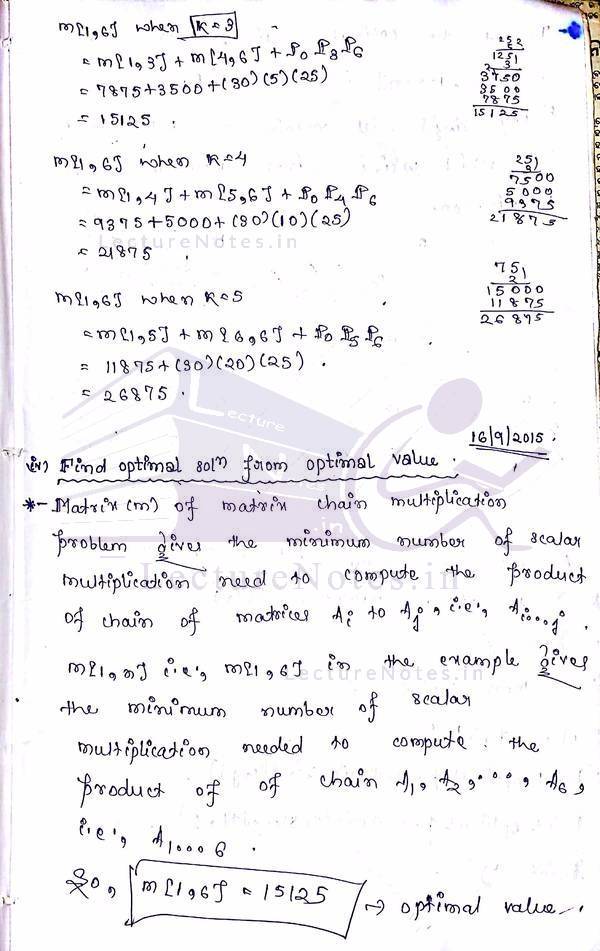 m[1,6] when K=3
= m[1,3] + m[4,6] + P0 P3 P6
= 7875+3500+(30)(5)(25)
= 15125.
3750
3500
7875
15125
m[1,6] when K=4
= m[1,4] + m[5,6] + P0 P4 P6
= 9375+5000+(30)(10)(25)
= 21875.
7500
5000
9375
21875
LectureNotes.in
m[1,6] when K=5
= m[1,5] + m[6,6] + P0 P5 P6
= 11875+(30)(20)(25).
= 26875.
15000
11875
26875
Lecture
16/9/2015.
iv) Find optimal soln from optimal value.
*- Matrix(m) of matrix chain multiplication
problem gives the minimum number of scalar
multiplication need to compute the product
LectureNotes.in
of chain of matrices Ai to Aj, i.e., Ai...j.
m[1,n] i.e., m[1,6] in the example gives
LectureNotes.in
the minimum number of scalar
multiplication needed to compute the
product of of chain A1, A2, ..., A6,
i.e., A1...6.
So, m[1,6] = 15125 → optimal value.